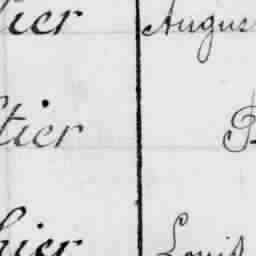 tier Augus
tier P
hier Louis